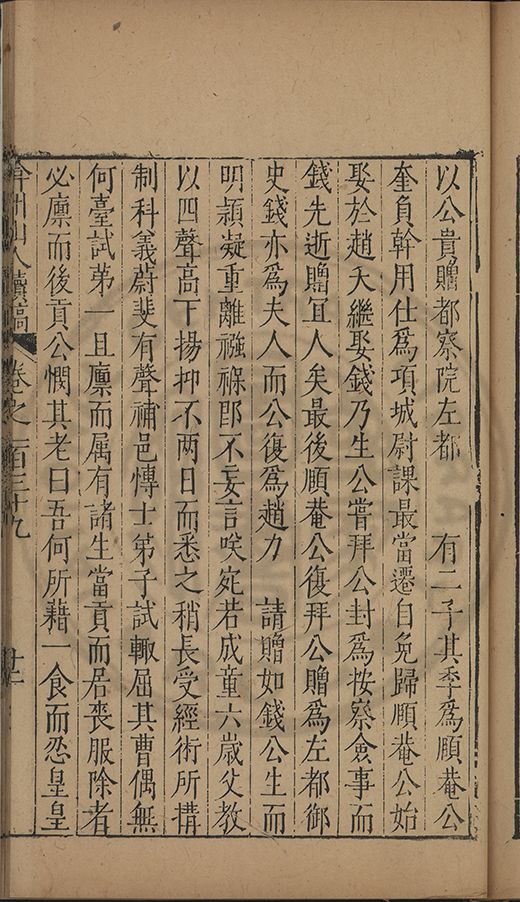 以公貴贈都察院左都　　有二子其季為順菴公
奎負幹用仕為項城尉課最當遷自免歸順菴公始
娶於趙夭繼娶錢乃生公嘗拜公封為按察僉事而
錢先逝贈宜人矣最後順菴公復拜公贈為左都御
史錢亦為夫人而公復為趙力　請贈如錢公生而
明穎凝重離襁褓即不妄言咲宛若成童六歲父教
以四聲高下揚抑不兩日而悉之稍長受經術所搆
制科義蔚斐有聲補邑博士弟子試輙屈其曹偶無
何臺試第一且廪而属有諸生當貢而居喪服除者
必廪而後貢公憫其老曰吾何所藉一食而忍皇皇
弇州山人續稿　卷之一百三十九　廿二